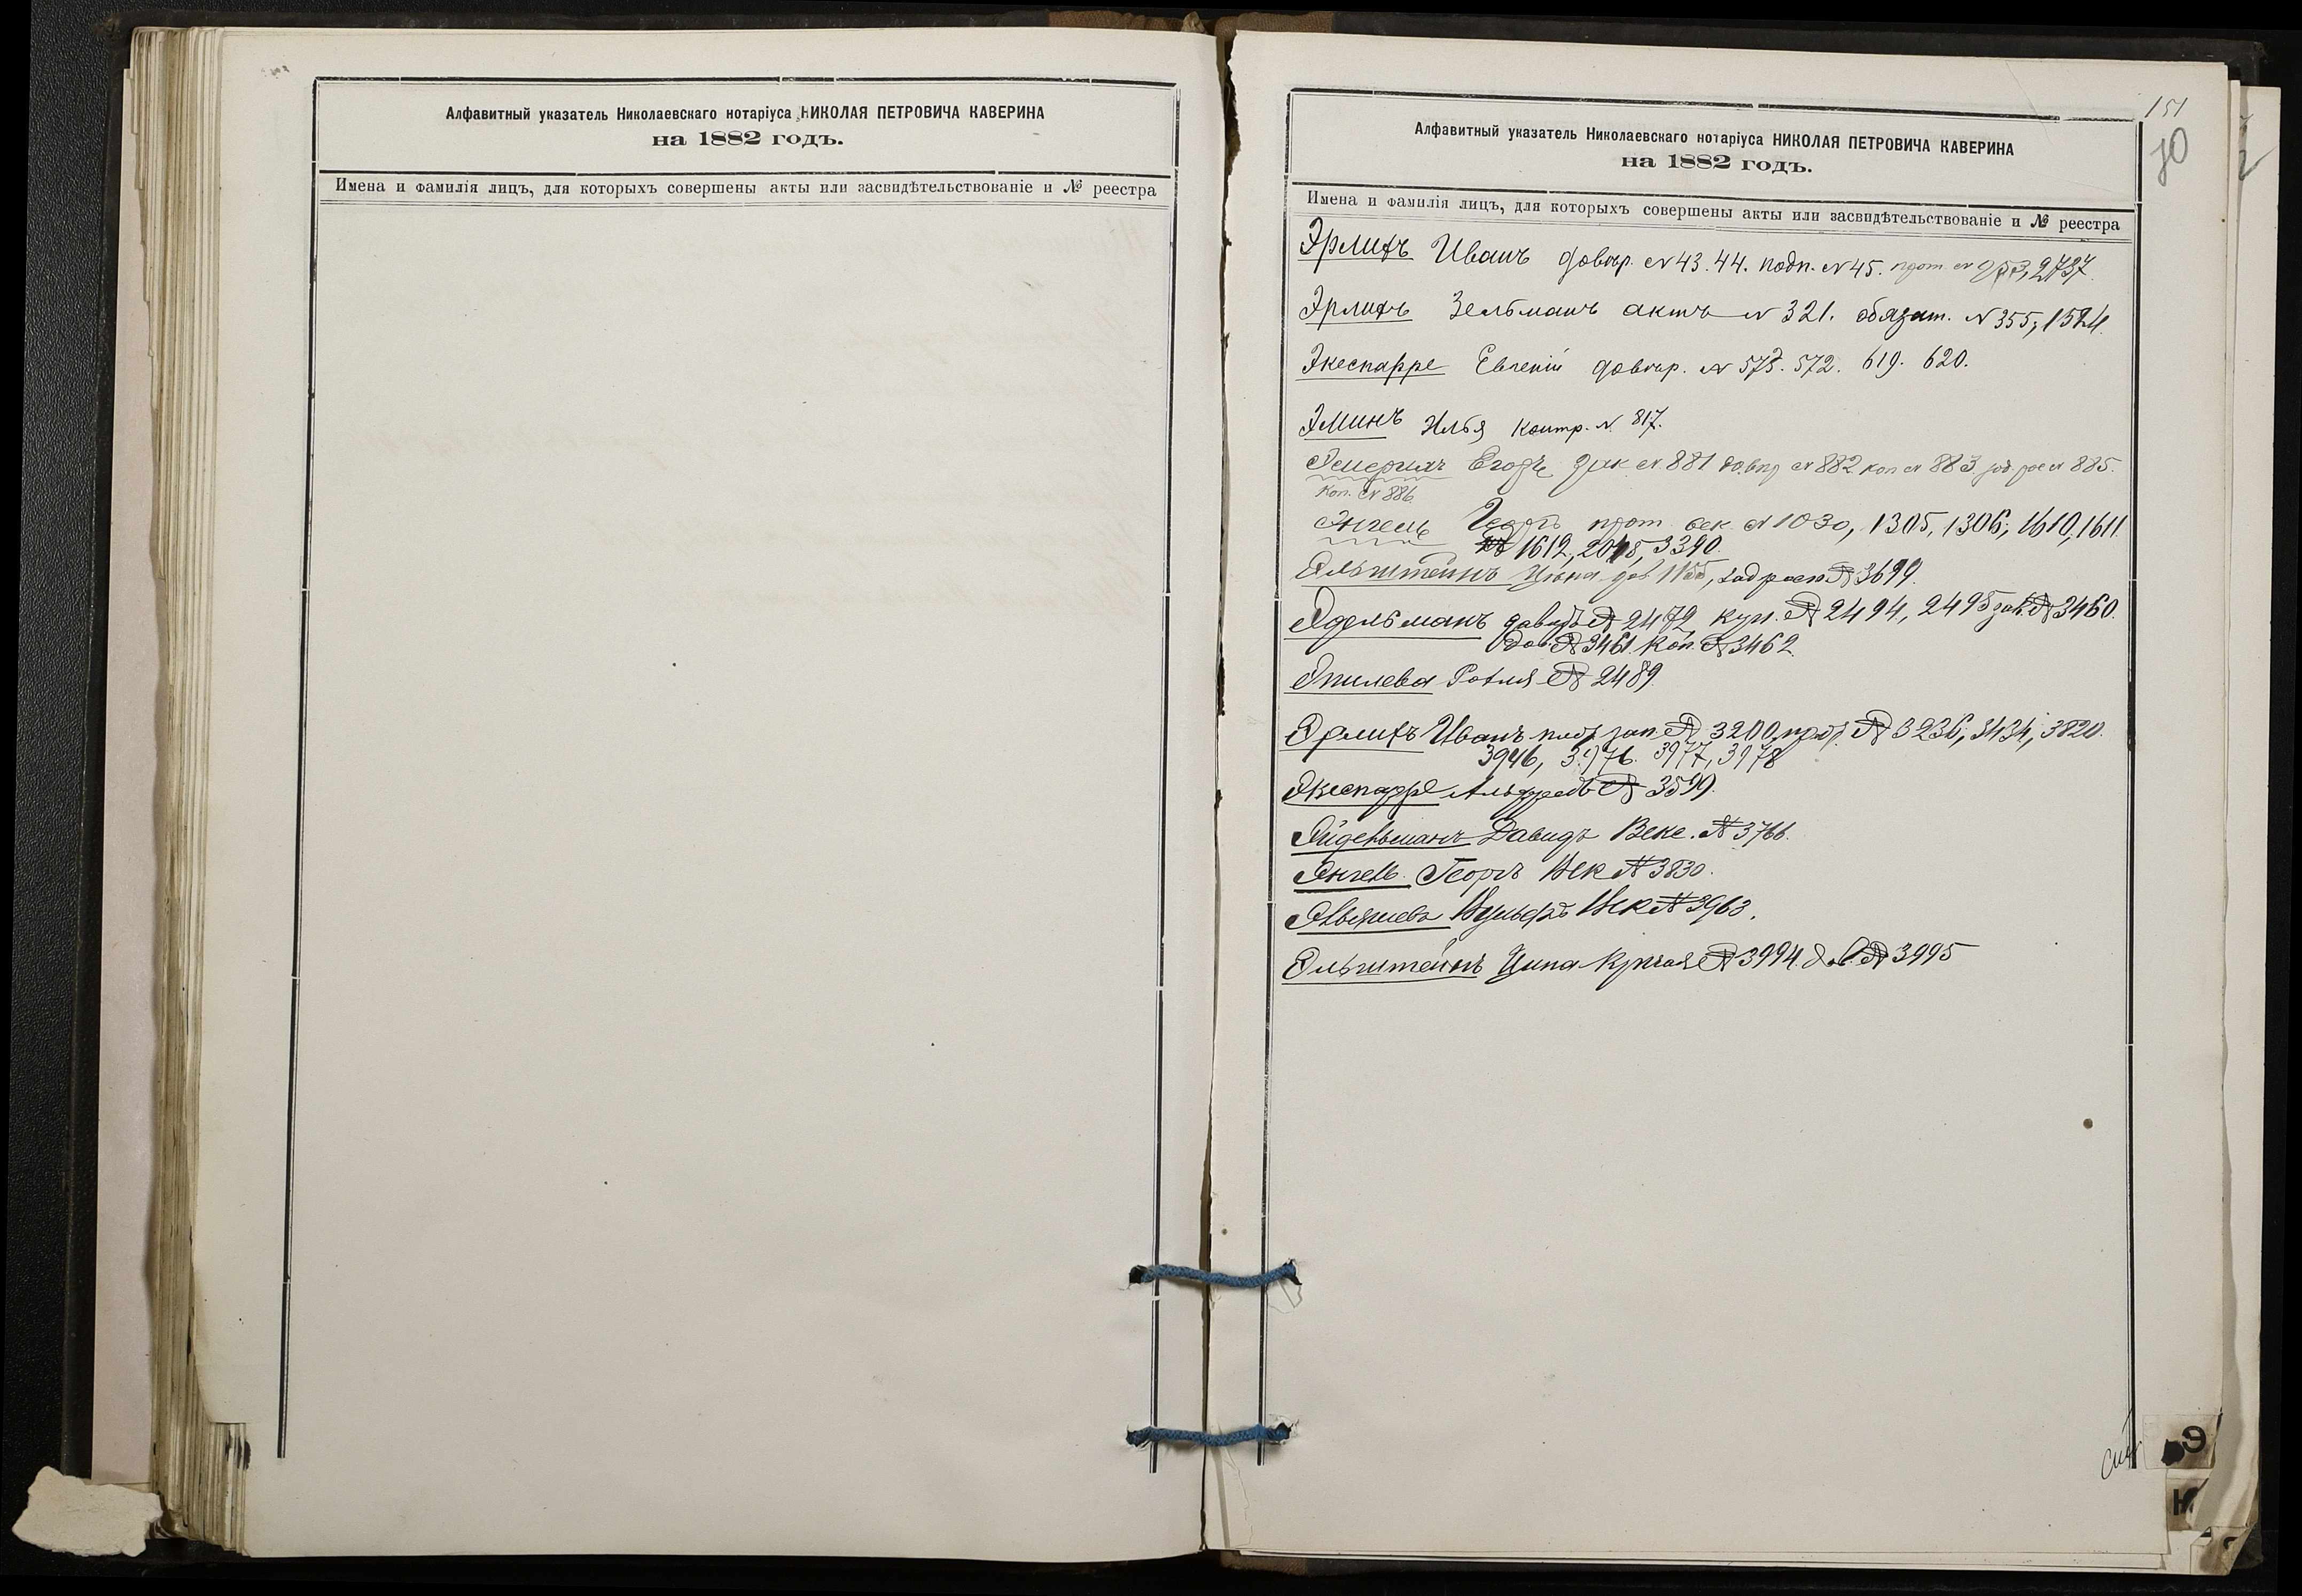 Алфавитный указатель Николаевскаго нотаріуса НИКОЛАЯ ПЕТРОВИЧА КАВЕРИНА
на 1882 годъ.
Имена и фамилія лицъ, для которыхъ совершены акты или засвидѣтельствованіе и № реестра
151
70
Алфавитный указатель Николаевскаго нотаріуса НИКОЛАЯ ПЕТРОВИЧА КАВЕРИНА
на 1882 годъ.
Имена и фамилія лицъ, для которыхъ совершены акты или засвидѣтельствованіе и № реестра
Эрлихъ Иванъ довѣр. № 43. 44. подп. № 45. прот. № 2737.
Эрлихъ Зельманъ актъ № 321. обязат. № 355; 1524.
Экеспарре Евгеній довѣр. № 573. 572. 619. 620.
Эминъ Илья контр. № 817.
Егоръ № 881 довѣр № 882 коп № 883 № 885.
коп. № 886
Энгель Георгъ прот. век № 1030, 1305, 1306; 1610, 1611
1612, 2048, 3390.
Эльштейнъ 1155, № 3699.
Эдельманъ Давидъ № 2472, куп. № 2494, 2495 зак. № 3460.
Дов. № 3461. Коп. № 3462.
Эпилева № 2489
Эрлихъ Иванъ № 3200, № 3236, 3434, 3820.
3946, 3976. 3977, 3978
Экеспарре Альфредъ № 3599.
Эйдельманъ Давидъ Векс. № 3766.
Энгель Георгъ Век № 3830.
Век № 3963.
Эльштейнъ Ципа № 3994. Дов. № 3995
Э